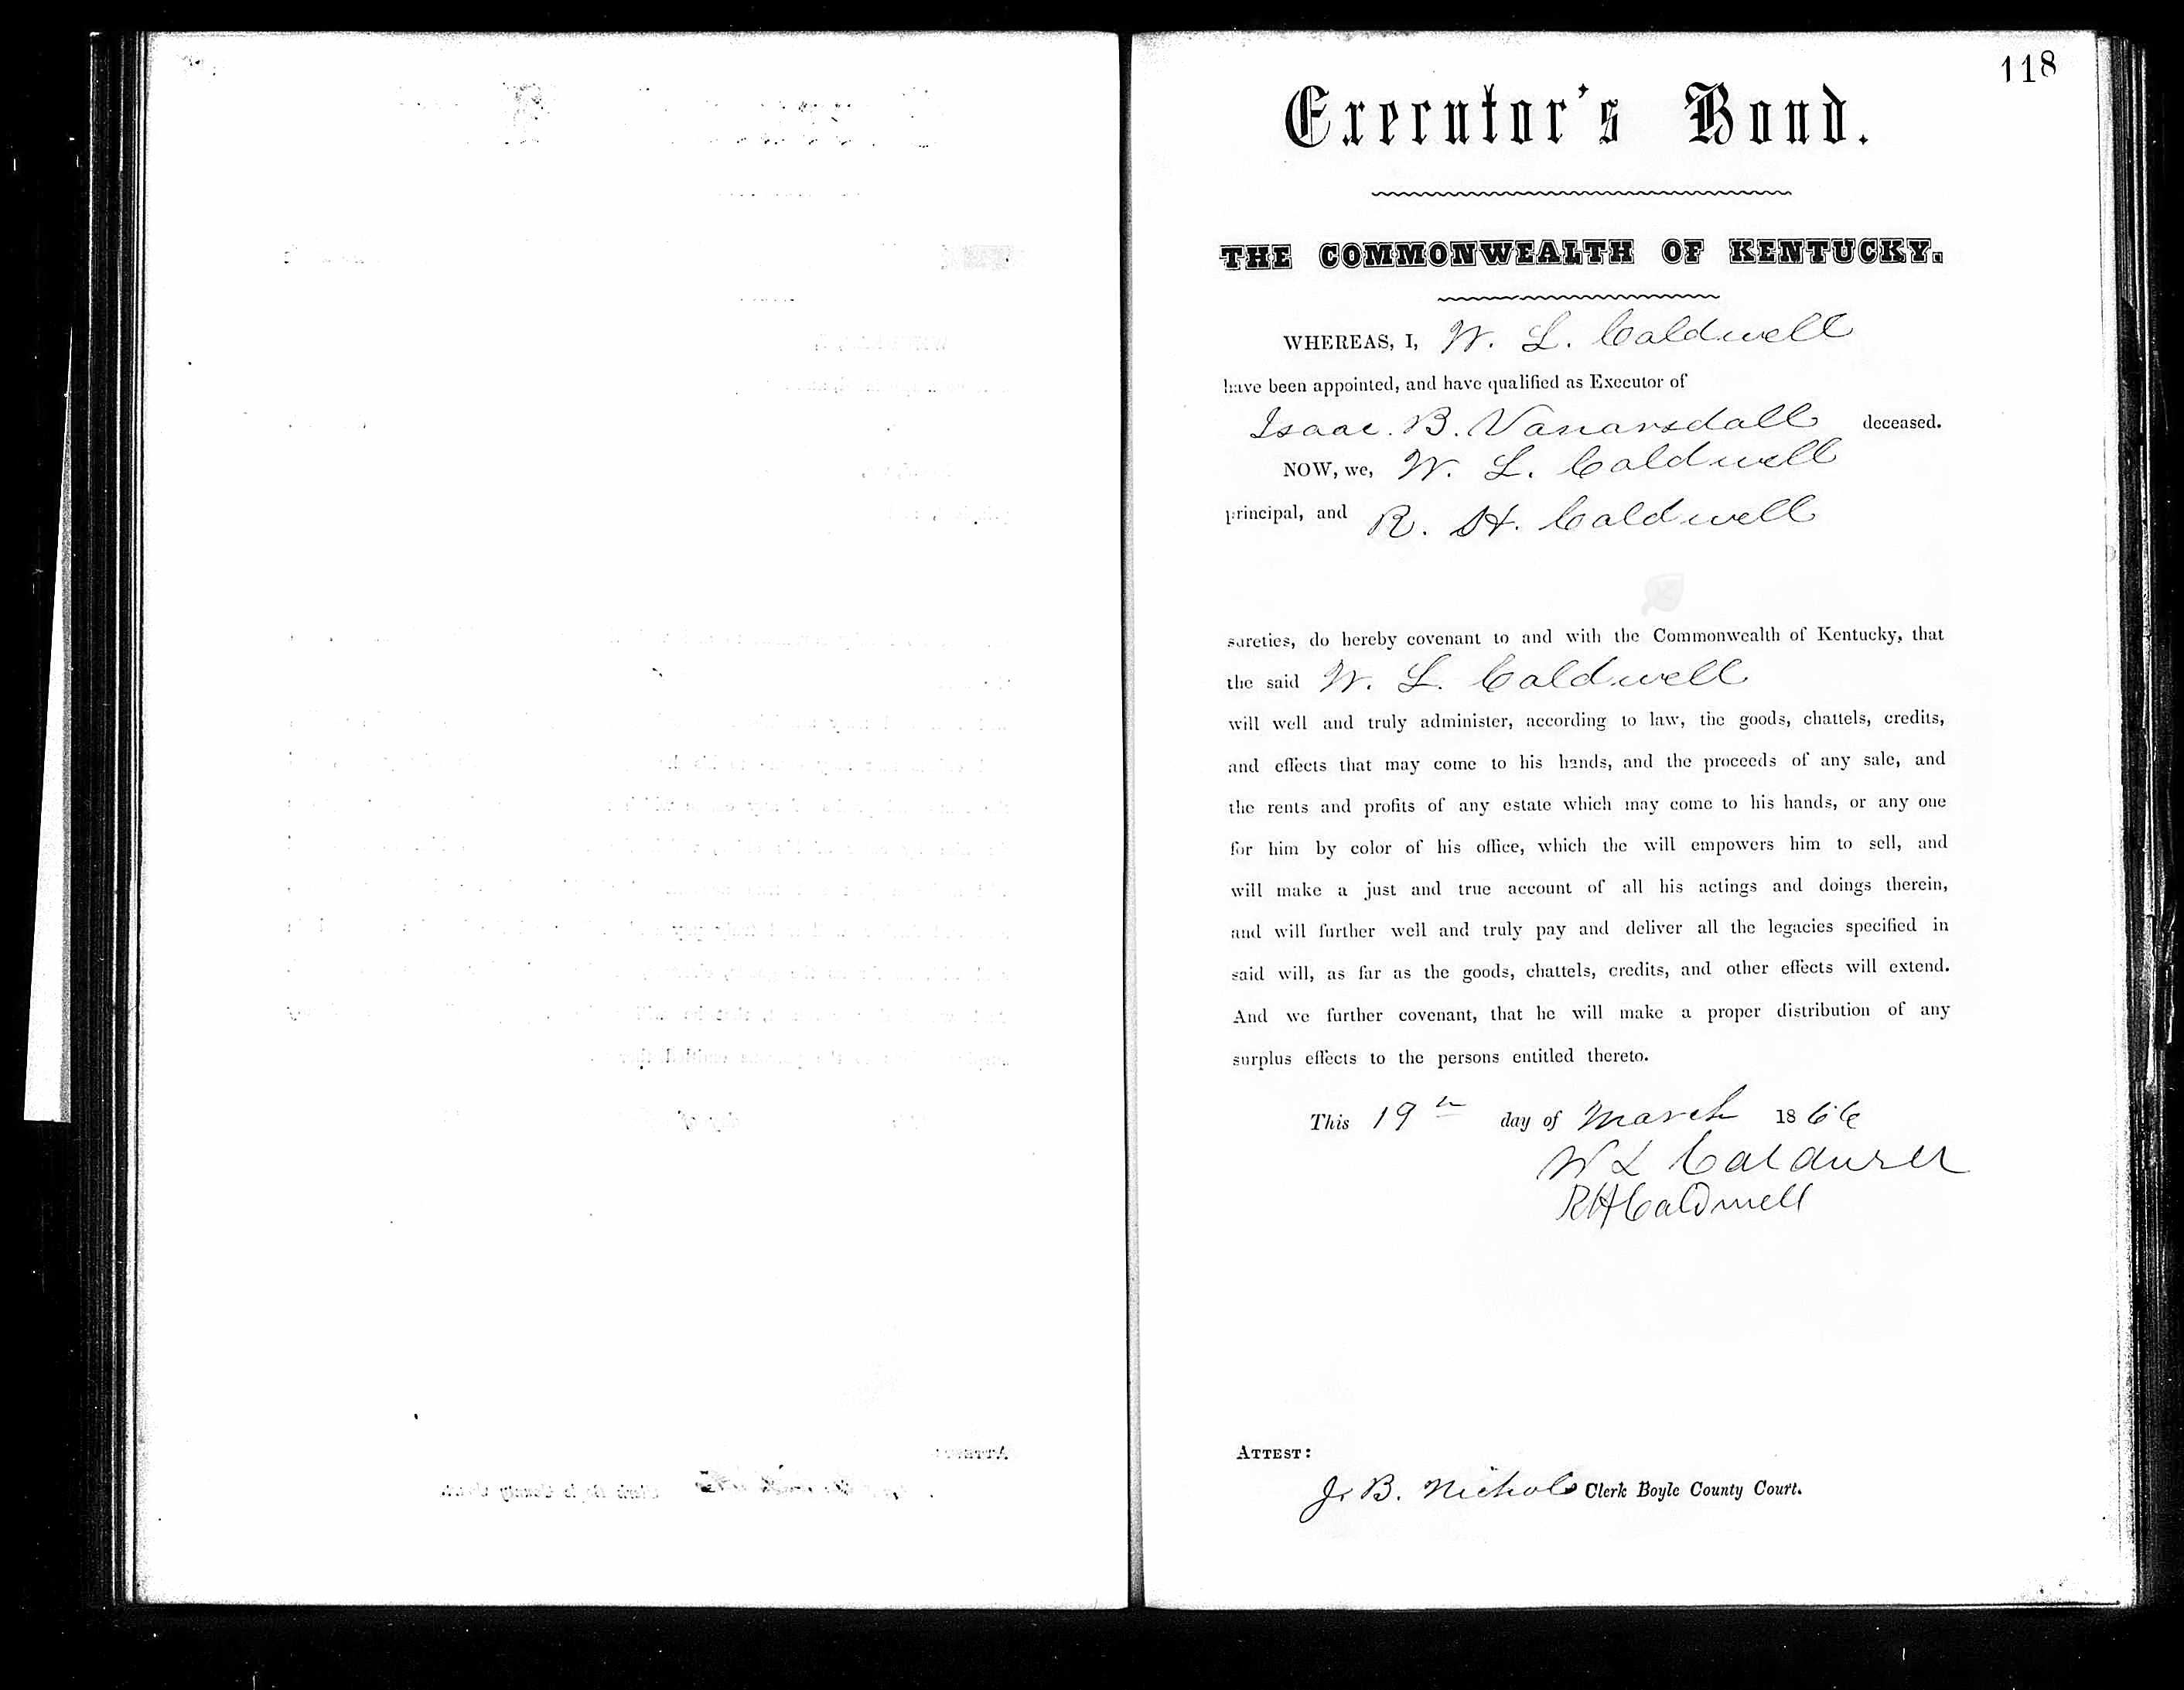 118
Executor's Bond.
THE COMMONWEALTH OF KENTUCKY.
WHEREAS, I, W. L. Caldwell
have been appointed, and have qualified as Executor of
Isaac. B. Vanarsdall deceased.
NOW, we, W. L. Caldwell
principal, and R. H. Caldwell
sureties, do hereby covenant to and with the Commonwealth of Kentucky, that
the said W. L. Caldwell
will well and truly administer, according to law, the goods, chattels, credits,
and effects that may come to his hands, and the proceeds of any sale, and
the rents and profits of any estate which may come to his hands, or any one
for him by color of his office, which the will empowers him to sell, and
will make a just and true account of all his actings and doings therein,
and will further well and truly pay and deliver all the legacies specified in
said will, as far as the goods, chattels, credits, and other effects will extend.
And we further covenant, that he will make a proper distribution of any
surplus effects to the persons entitled thereto.
This 19th day of March 1866
W L Caldwell
R H Caldwell
ATTEST:
J. B. Nichols Clerk Boyle County Court.